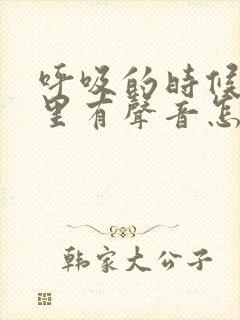 呼吸的时候
里有聲音怎
韩家大公子